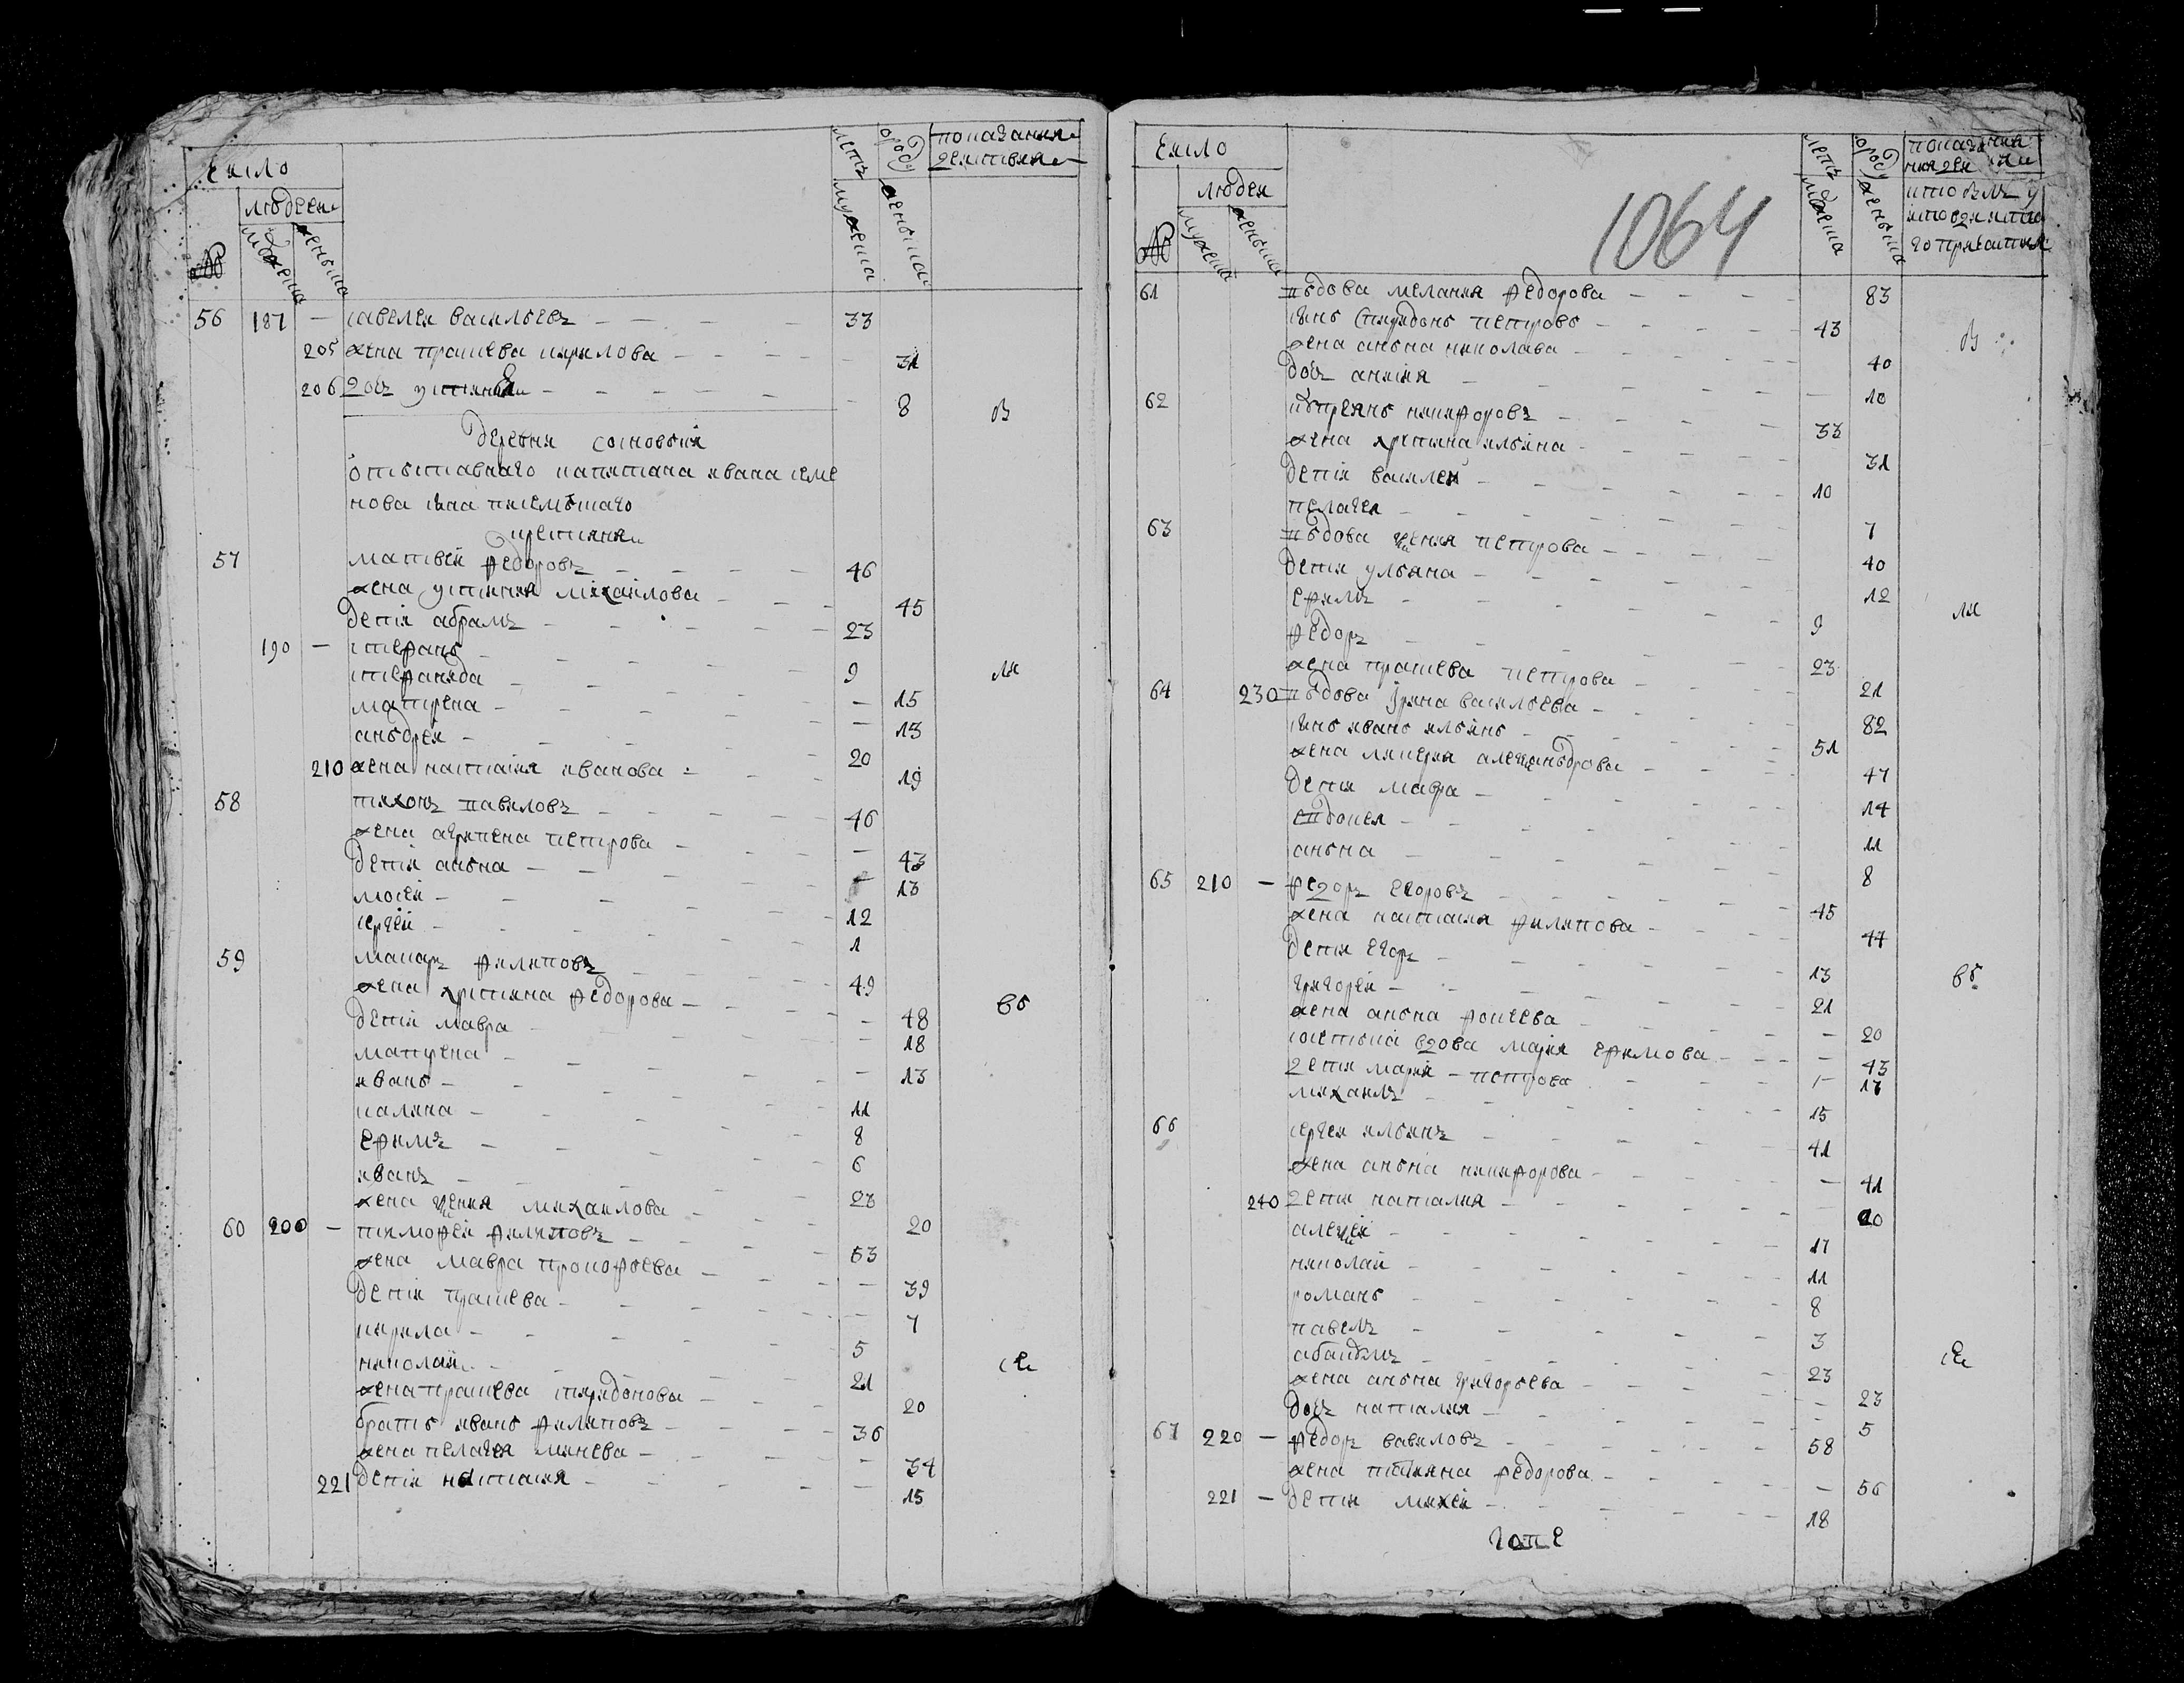 Число
людеи
№
мужеска
женьска
летъ
мужеска
о роду
женьска
показания
деиствия
56 187 — савелеи васильевъ — 33
205 жена прасковa кирилова — 31
206 дочь устинья — 8
в
деревня сосновской
отставнаго капитана ивана семе
нова сына писемского
крестияня
57 матвеи федоровъ — 46
жена устиния михайлова — 45
дети абрамъ — 23
190 — степанъ — 9
степанида — 15
матрена — 13
андреи — 20
210 жена настасия иванова — 19
ли
58 тихонъ павиловъ — 46
жена агрипена петрова — 43
дети анна — 13
мосеи — 12
сергеи — 1
59 макаръ филиповъ — 49
жена христина федорова — 48
во
дети мавра — 18
матрена — 13
иванъ — 11
калина — 8
ефимъ — 6
иванъ — 23
жена ксения михаилова — 20
60 200 — тимофеи филиповъ — 53
жена мавра прокофьева — 39
дети праскева — 7
кирила — 5
николаи — 21
се
жена праскева спиридонова — 20
братъ иванъ филиповъ — 36
жена пелагея минеева — 34
221 дети настасия — 15
Число
людеи
№
мужеска
женьска
1064
летъ
мужеска
о роду
женьска
61 вдова мелания федорова — 83
сынъ спиридонъ петровъ — 43
жена анна николава — 40
в
дочь анисия — 10
62 киприянъ никифоровъ — 33
жена христина ильина — 31
дети василеи — 10
пелагея — 7
63 вдова ксения петрова — 40
дети ульяна — 12
ефимъ — 9
ли
федоръ — 23
жена праскева петрова — 21
64 230 вдова ирина васильева — 82
сынъ иванъ ильинъ — 51
жена ликерия александрова — 47
дети мавра — 14
евдокея — 11
анна — 8
65 210 — федоръ егоровъ — 45
жена настасия филипова — 47
дети егоръ — 13
григореи — 21
во
жена анна фокеева — 20
вдова мария ефимова — 43
дети мария петрова — 17
михаилъ — 15
66 сергеи ильинъ — 41
жена анна никифорова — 41
240 дети наталия — 20
алексеи — 17
николаи — 11
романъ — 8
павелъ — 3
— 23
се
жена анна григорьева — 23
дочь наталия — 5
67 220 — федоръ вавиловъ — 58
жена татияна федорова — 56
221 — дети михеи — 18